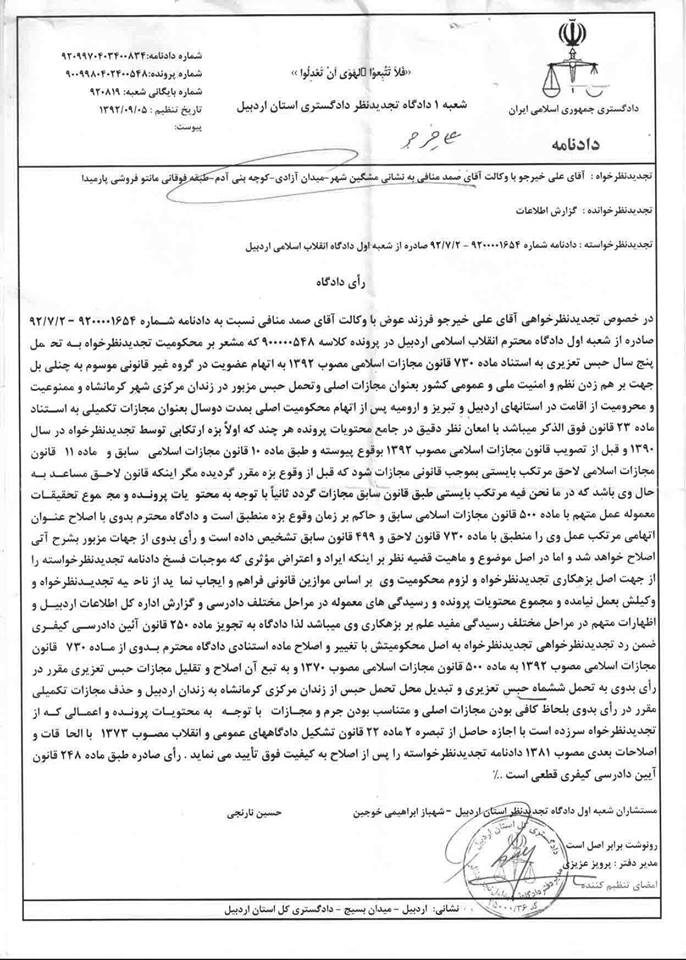 شماره دادنامه:۹۲۰۹۹۷۰۴۰۳۴۰۰۸۳۴
شماره پرونده:۹۰۰۹۹۸۰۴۰۲۴۰۰۵۴۸
شماره بایگانی شعبه: ۹۲۰۸۱۹
تاریخ تنظیم : ۱۳۹۲/۰۹/۰۵
پیوست:
«فَلا تَتَّبِعوُا الهَوَی اَنْ تَعْدِلُوا »
شعبه ۱ دادگاه تجدیدنظر دادگستری استان اردبیل
دادگستری جمهوری اسلامی ایران
دادنامه
تجدیدنظرخواه : آقای علی خیرجو با وکالت آقای صمد منافی به نشانی مشگین شهر-میدان آزادی-کوچه بنی آدم-طبقه فوقانی مانتو فروشی پارمیدا
تجدیدنظرخوانده : گزارش اطلاعات
تجدیدنظرخواسته : دادنامه شماره ۹۲۰۰۰۰۱۶۵۴ - ۹۲/۷/۲ صادره از شعبه اول دادگاه انقلاب اسلامی اردبیل
رأی دادگاه
در خصوص تجدیدنظرخواهی آقای علی خیرجو فرزند عوض با وکالت آقای صمد منافی نسبت به دادنامه شماره ۹۲۰۰۰۰۱۶۵۴ - ۹۲/۷/۲
صادره از شعبه اول دادگاه محترم انقلاب اسلامی اردبیل در پرونده کلاسه ۹۰۰۰۰۰۵۴۸ که مشعر بر محکومیت تجدیدنظرخواه به تحمل
پنج سال حبس تعزیری به استناد ماده ۷۳۰ قانون مجازات اسلامی مصوب ۱۳۹۲ به اتهام عضویت در گروه غیر قانونی موسوم به چنلی بل
جهت بر هم زدن نظم و امنیت ملی و عمومی کشور بعنوان مجازات اصلی وتحمل حبس مزبور در زندان مرکزی شهر کرمانشاه و ممنوعیت
و محرومیت از اقامت در استانهای اردبیل و تبریز و ارومیه پس از اتهام محکومیت اصلی بمدت دوسال بعنوان مجازات تکمیلی به استناد
ماده ۲۳ قانون فوق الذکر میباشد با امعان نظر دقیق در جامع محتویات پرونده هر چند که اولاً بزه ارتکابی توسط تجدیدنظرخواه در سال
۱۳۹۰ و قبل از تصویب قانون مجازات اسلامی مصوب ۱۳۹۲ بوقوع پیوسته و طبق ماده ۱۰ قانون مجازات اسلامی سابق و ماده ۱۱ قانون
مجازات اسلامی لاحق مرتکب بایستی بموجب قانونی مجازات شود که قبل از وقوع بزه مقرر گردیده مگر اینکه قانون لاحق مساعد به
حال وی باشد که در ما نحن فیه مرتکب بایستی طبق قانون سابق مجازات گردد ثانیاً با توجه به محتویات پرونده و مجموع تحقیقات
معموله عمل متهم با ماده ۵۰۰ قانون مجازات اسلامی سابق و حاکم بر زمان وقوع بزه منطبق است و دادگاه محترم بدوی با اصلاح عنوان
اتهامی مرتکب عمل وی را منطبق با ماده ۷۳۰ قانون لاحق و ۴۹۹ قانون سابق تشخیص داده است و رأی بدوی از جهات مزبور بشرح آتی
اصلاح خواهد شد و اما در اصل موضوع و ماهیت قضیه نظر بر اینکه ایراد و اعتراض مؤثری که موجبات فسخ دادنامه تجدیدنظرخواسته را
از جهت اصل بزهکاری تجدیدنظرخواه و لزوم محکومیت وی بر اساس موازین قانونی فراهم و ایجاب نماید از ناحیه تجدیدنظرخواه و
وکیلش بعمل نیامده و مجموع محتویات پرونده و رسیدگی های معموله در مراحل مختلف دادرسی و گزارش اداره کل اطلاعات اردبیل و
اظهارات متهم در مراحل مختلف رسیدگی مفید علم بر بزهکاری وی میباشد لذا دادگاه به تجویز ماده ۲۵۰ قانون آئین دادرسی کیفری
ضمن رد تجدیدنظرخواهی تجدیدنظرخواه به اصل محکومیتش با تغییر و اصلاح ماده استنادی دادگاه محترم بدوی از ماده ۷۳۰ قانون
مجازات اسلامی مصوب ۱۳۹۲ به ماده ۵۰۰ قانون مجازات اسلامی مصوب ۱۳۷۰ و به تبع آن اصلاح و تقلیل مجازات حبس تعزیری مقرر در
رأی بدوی به تحمل ششماه حبس تعزیری و تبدیل محل تحمل حبس از زندان مرکزی کرمانشاه به زندان اردبیل و حذف مجازات تکمیلی
مقرر در رأی بدوی بلحاظ کافی بودن مجازات اصلی و متناسب بودن جرم و مجازات با توجه به محتویات پرونده و اعمالی که از
تجدیدنظرخواه سرزده است با اجازه حاصل از تبصره ۲ ماده ۲۲ قانون تشکیل دادگاههای عمومی و انقلاب مصوب ۱۳۷۳ با الحاقات و
اصلاحات بعدی مصوب ۱۳۸۱ دادنامه تجدیدنظرخواسته را پس از اصلاح به کیفیت فوق تأیید می نماید . رأی صادره طبق ماده ۲۴۸ قانون
آیین دادرسی کیفری قطعی است .٪
مستشاران شعبه اول دادگاه تجدیدنظر استان اردبیل - شهباز ابراهیمی خوجین حسین نارنجی
رونوشت برابر اصل است
مدیر دفتر : پرویز عزیزی
امضای تنظیم کننده
دادگستری کل استان اردبیل
نشانی: اردبیل - میدان بسیج - دادگستری کل استان اردبیل